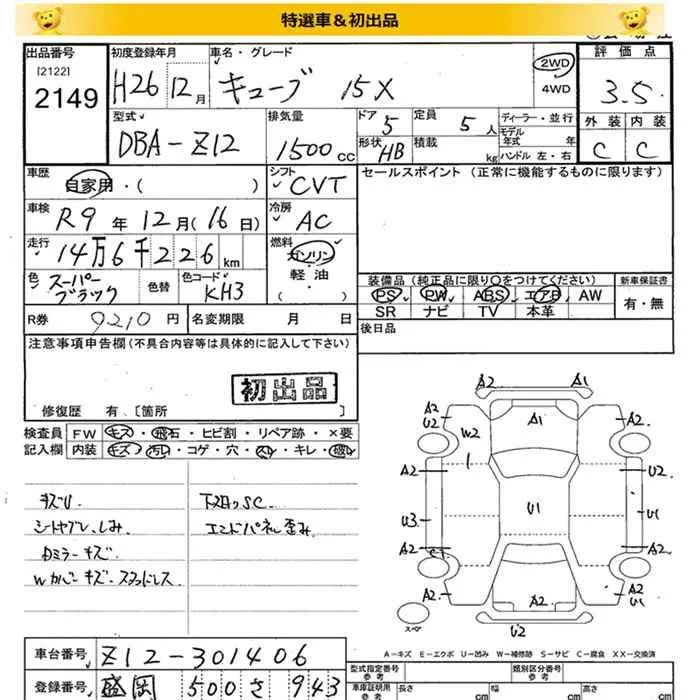 特選車＆初出品
出品番号 初度登録年月 車名・グレード 2WD 評価点
[2122]
2149 H26 12月 キューブ 15X 4WD 3.5
型式 排気量 ドア 定員 ディーラー・並行 外装 内装
DBA-Z12 1500cc 5 5人 モデル年式 年 C C
形状 HB 積載 kg ハンドル 左・右
車歴 シフト セールスポイント (正常に機能するものに限ります)
自家用・( ) CVT
車検 冷房
R9年12月(16日) AC
走行 燃料
14万6千226km ガソリン
軽・油
・( )
色 色替 色コード 装備品 (純正品に限り○をつけてください) 新車保証書
スーパーブラック KH3 PS PW ABS エアB AW 有・無
SR ナビ TV 本革
R券 9210円 名変期限 月 日 後日品
注意事項申告欄(不具合内容等は具体的に記入して下さい)
初出品
修復歴 有.〔箇所 〕
検査員 FW キズ・飛石・ヒビ割・リペア跡・×要
記入欄 内装 キズ・汚レ・コゲ・穴・スレ・キレ・破レ
キズU 下廻りSC
シートヤブレ、しみ エンドパネル歪み
Dミラーキズ
Wカバーキズ スタッドレス
A2 A1
A2 U2 A1 A2
W2
A2 U2
U3 U1 U1
A2 A2
A2 A2 A2 U1
スペア U2
A-キズ E-エクボ U-凹み W-補修跡 S-サビ C-腐食 XX-交換済
車台番号 Z12-301406 型式指定番号 類別区分番号
登録番号 盛岡 500 さ 943 車庫証明用 長さ cm 幅 cm 高さ cm